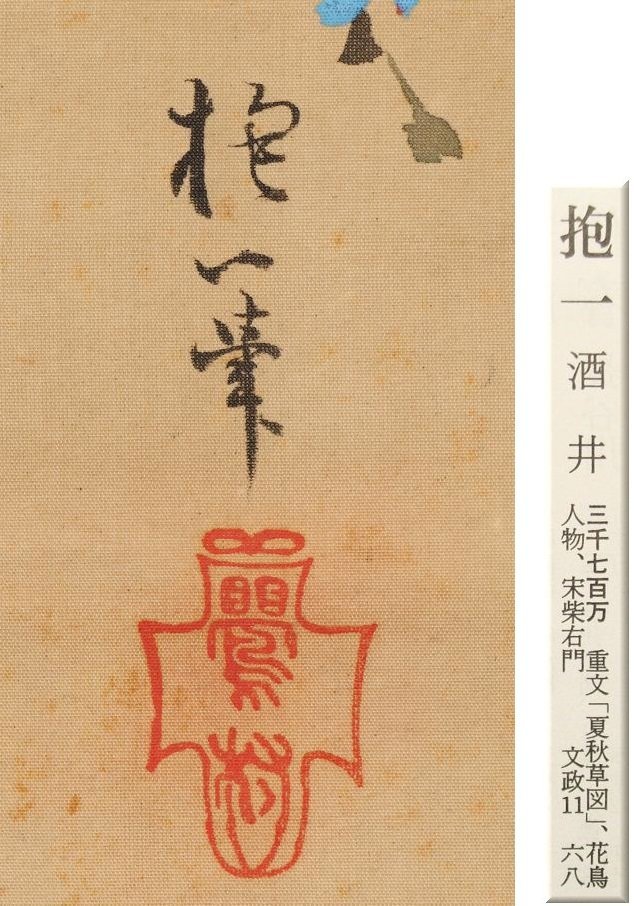 抱一筆
抱一 酒井
三千七百万 重文「夏秋草図」、花鳥
人物、宋柴右門 文政11 六八